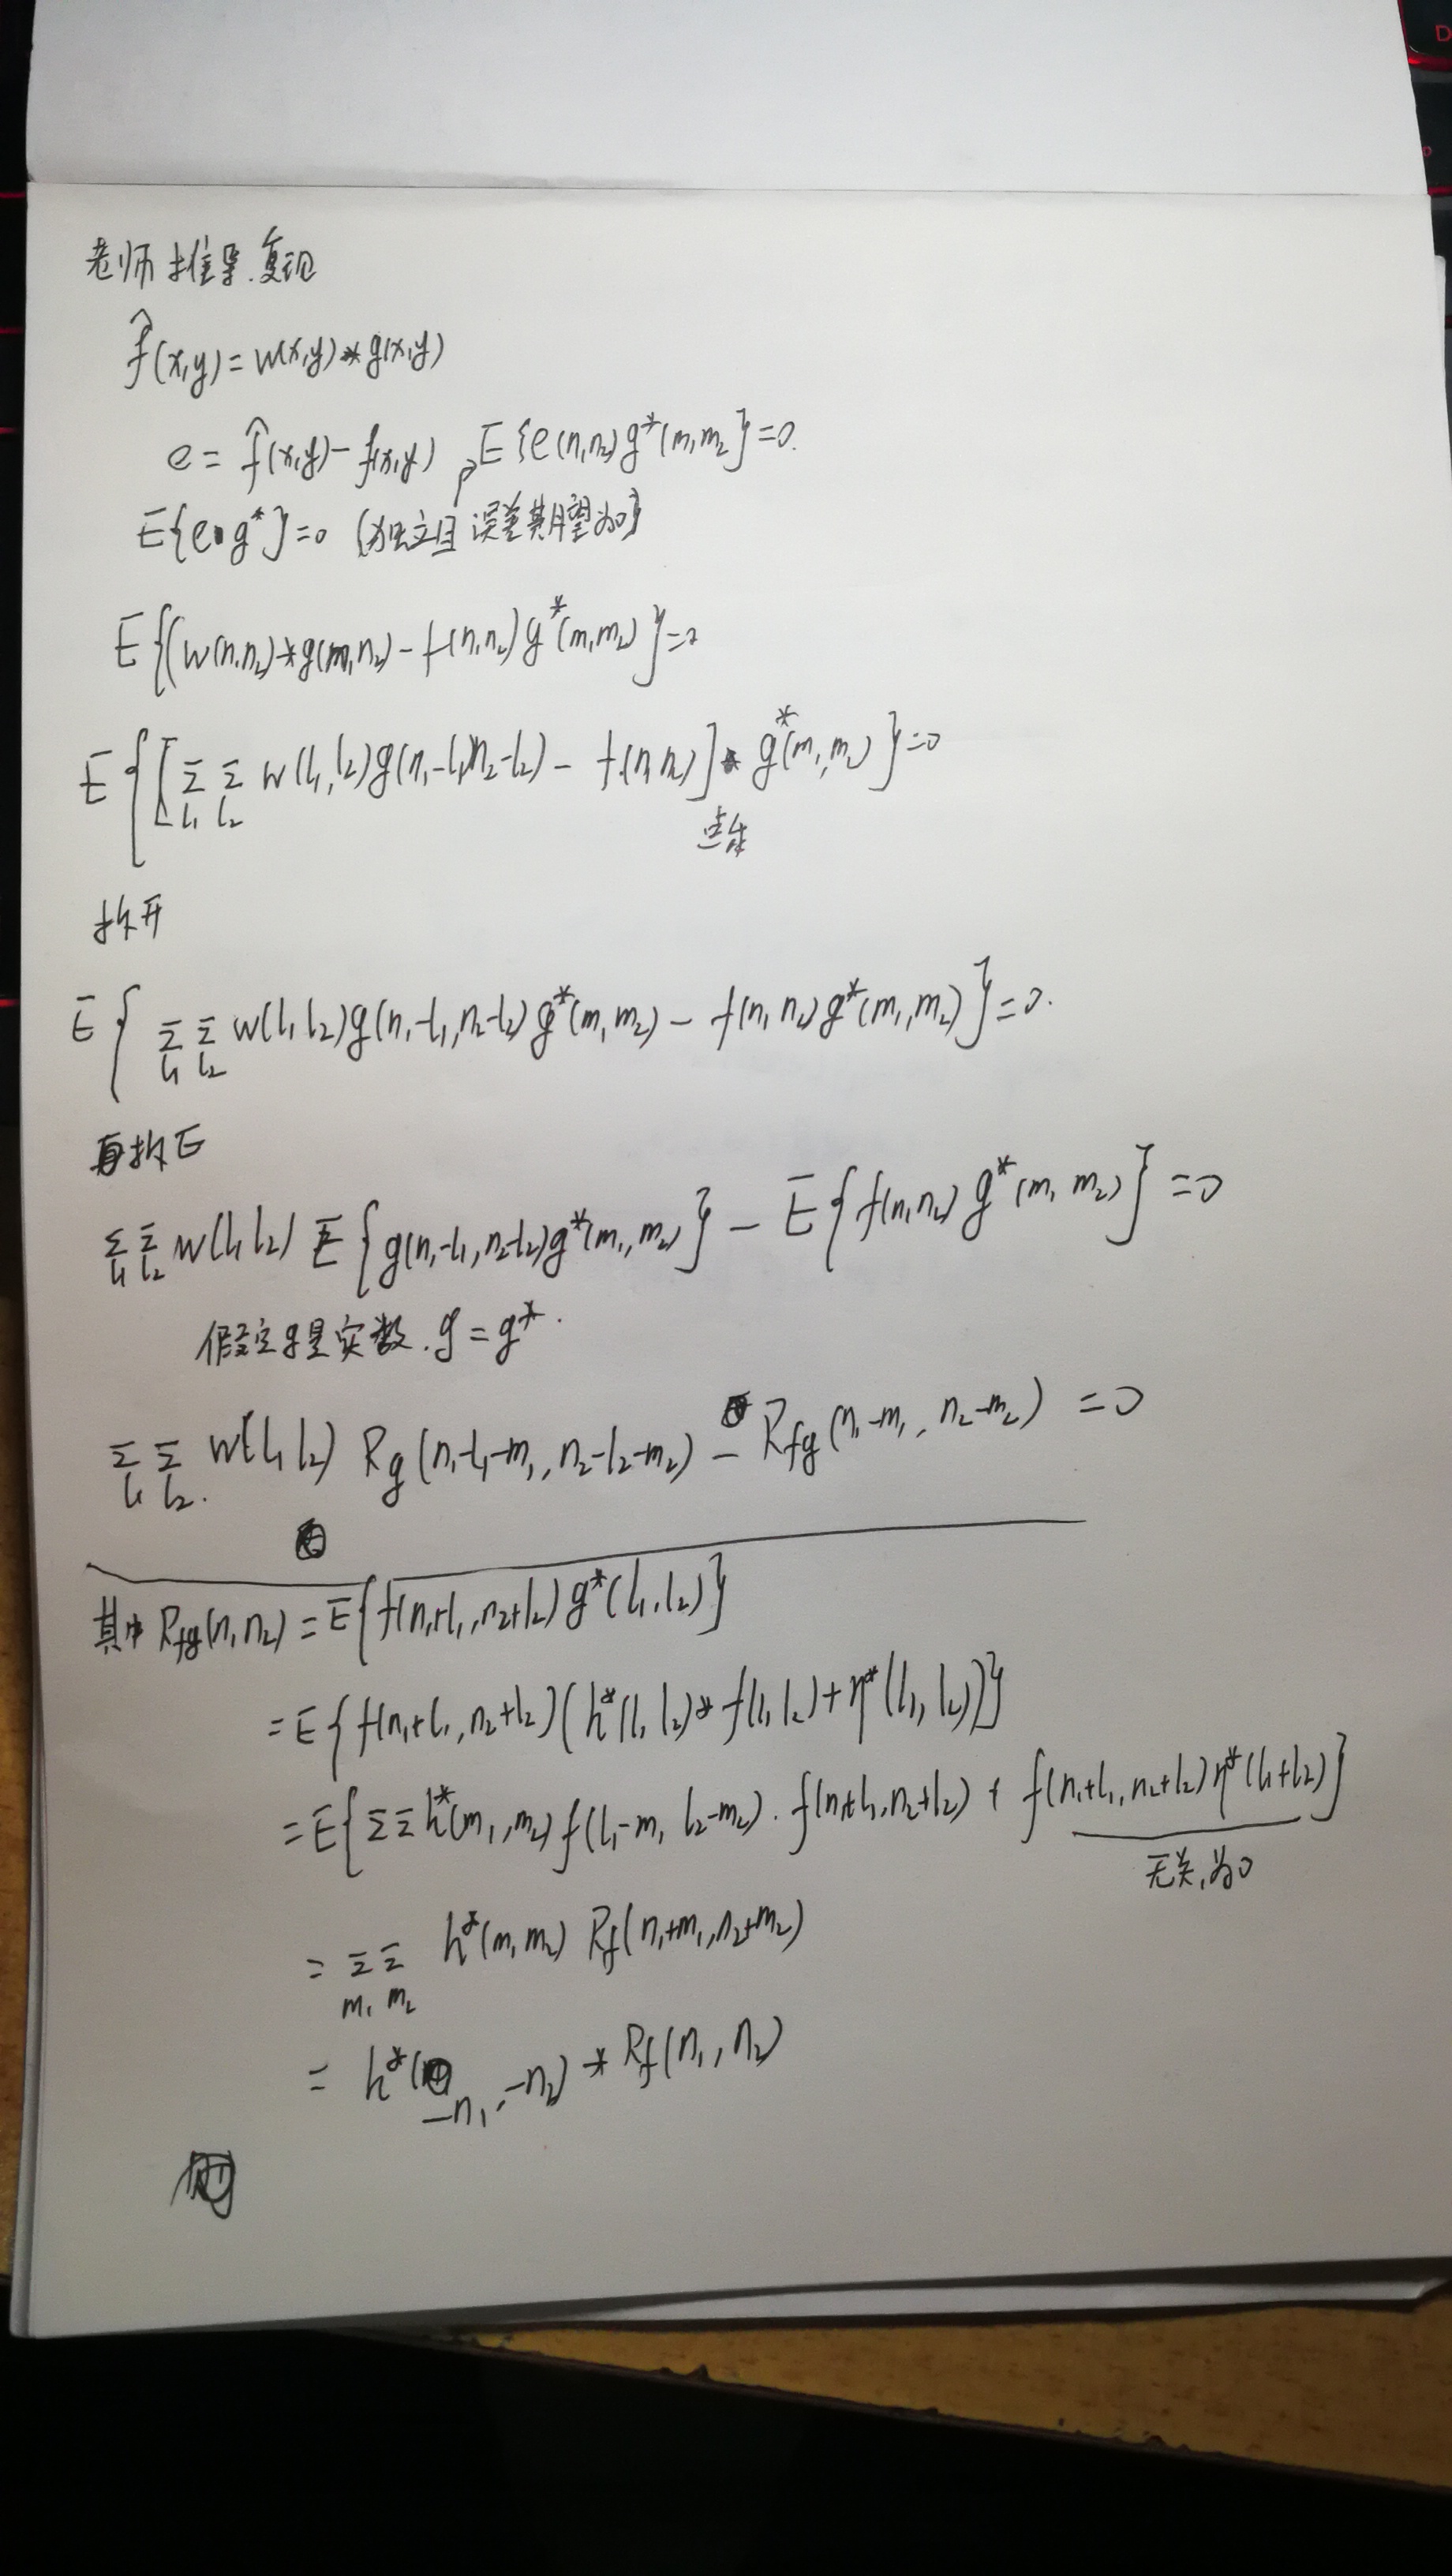 老师推导.复现
f̂(x,y)=w(x,y)*g(x,y)
e = f̂(x,y)-f(x,y) , E{e(n₁n₂)g*(m₁m₂)}=0.
E{e·g*}=0 (独立且误差期望为0)
E{(w(n₁n₂)*g(n₁n₂)-f(n₁n₂))g*(m₁m₂)}=0
E{[ΣΣw(l₁,l₂)g(n₁-l₁,n₂-l₂)-f(n₁n₂)]·g*(m₁,m₂)}=0
l₁ l₂
点乘
拆开
E{ΣΣw(l₁l₂)g(n₁-l₁,n₂-l₂)g*(m₁m₂)-f(n₁n₂)g*(m₁,m₂)}=0.
l₁ l₂
再拆E
ΣΣw(l₁l₂)E{g(n₁-l₁,n₂-l₂)g*(m₁,m₂)}-E{f(n₁n₂)g*(m₁m₂)}=0
l₁ l₂
假定g是实数.g=g*.
ΣΣw(l₁l₂)Rg(n₁-l₁-m₁,n₂-l₂-m₂)-Rfg(n₁-m₁,n₂-m₂)=0
l₁ l₂.
其中Rfg(n₁n₂)=E{f(n₁+l₁,n₂+l₂)g*(l₁,l₂)}
=E{f(n₁+l₁,n₂+l₂)(h*(l₁l₂)*f(l₁l₂)+η*(l₁,l₂))}
=E{ΣΣh*(m₁,m₂)f(l₁-m₁ l₂-m₂)·f(n₁+l₁,n₂+l₂)+f(n₁+l₁,n₂+l₂)η*(l₁+l₂)}
无关,为0
=ΣΣ h*(m₁m₂)Rf(n₁+m₁,n₂+m₂)
m₁ m₂
=h*(-n₁,-n₂)*Rf(n₁,n₂)